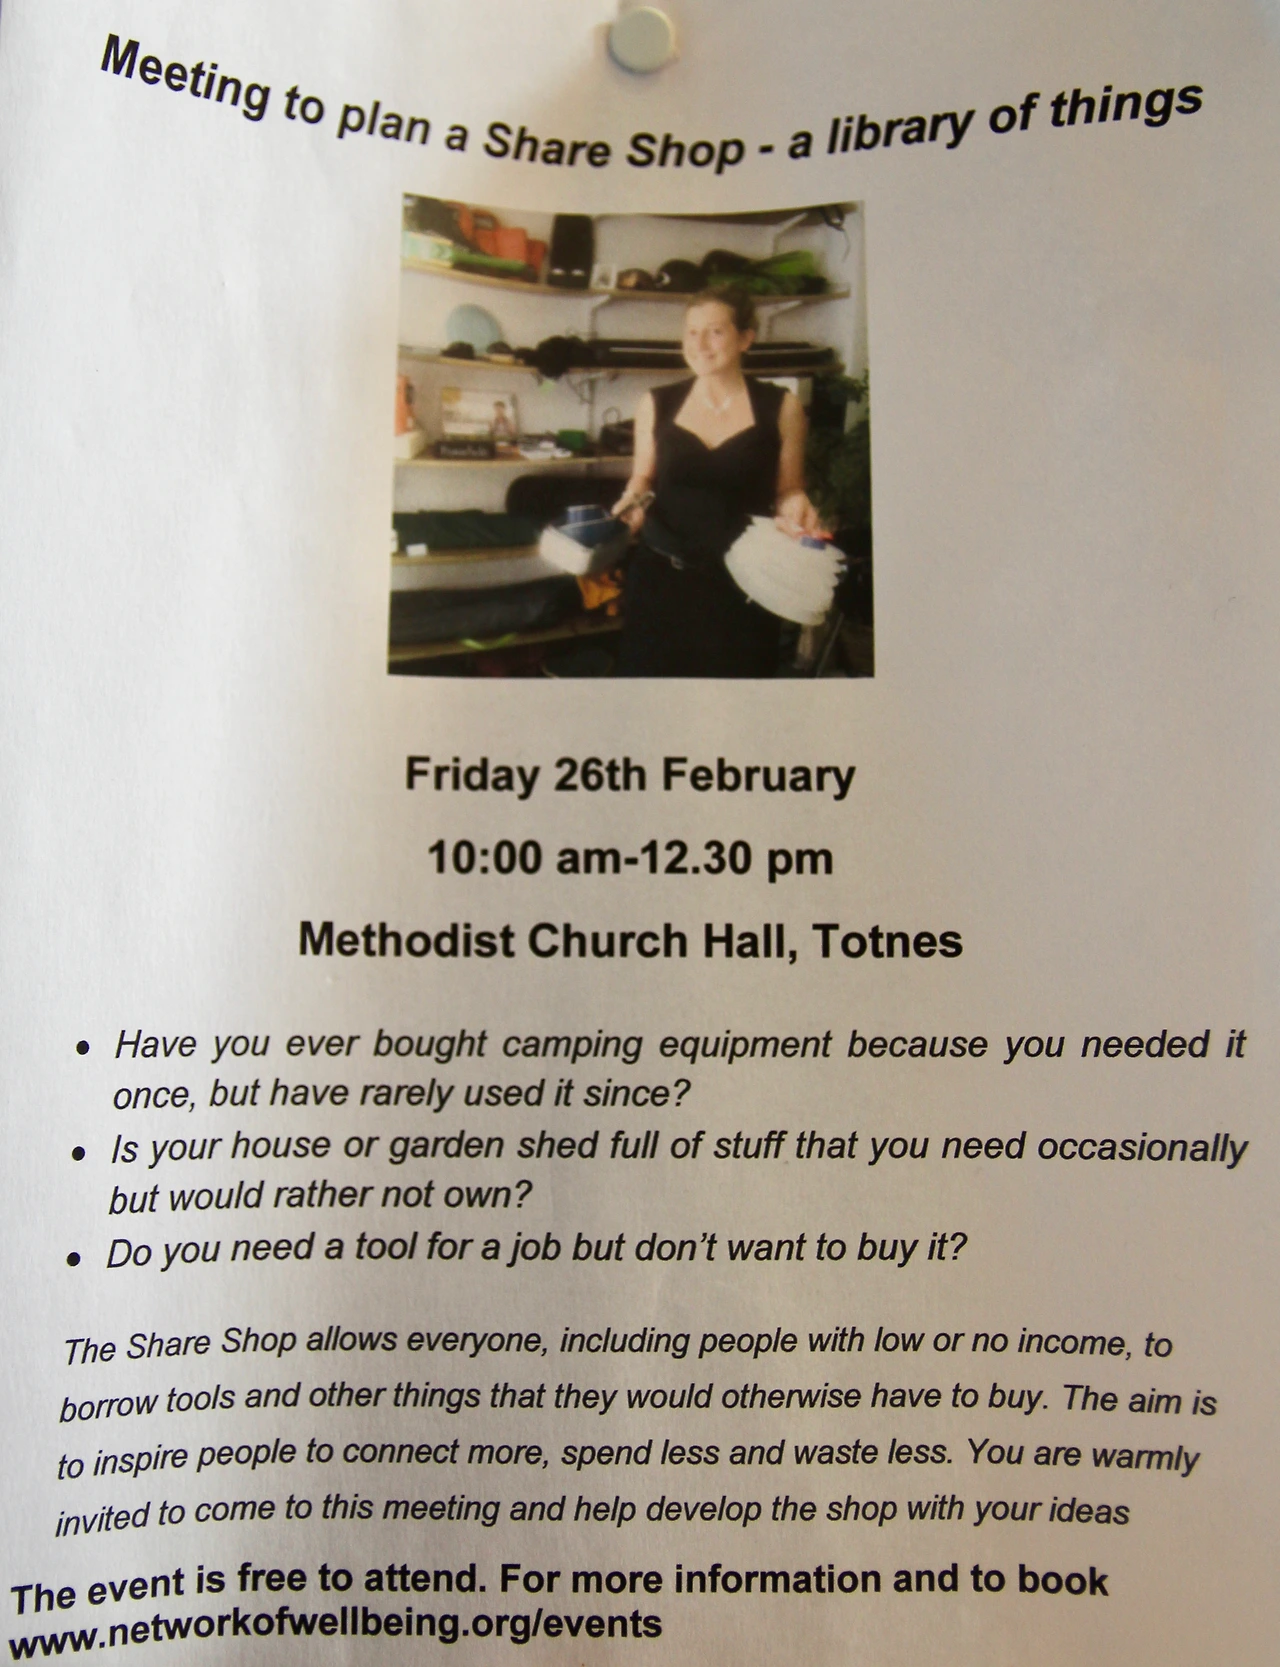 Meeting to plan a Share Shop - a library of things
Friday 26th February
10:00 am-12.30 pm
Methodist Church Hall, Totnes
• Have you ever bought camping equipment because you needed it
once, but have rarely used it since?
• Is your house or garden shed full of stuff that you need occasionally
but would rather not own?
• Do you need a tool for a job but don't want to buy it?
The Share Shop allows everyone, including people with low or no income, to
borrow tools and other things that they would otherwise have to buy. The aim is
to inspire people to connect more, spend less and waste less. You are warmly
invited to come to this meeting and help develop the shop with your ideas
The event is free to attend. For more information and to book
www.networkofwellbeing.org/events